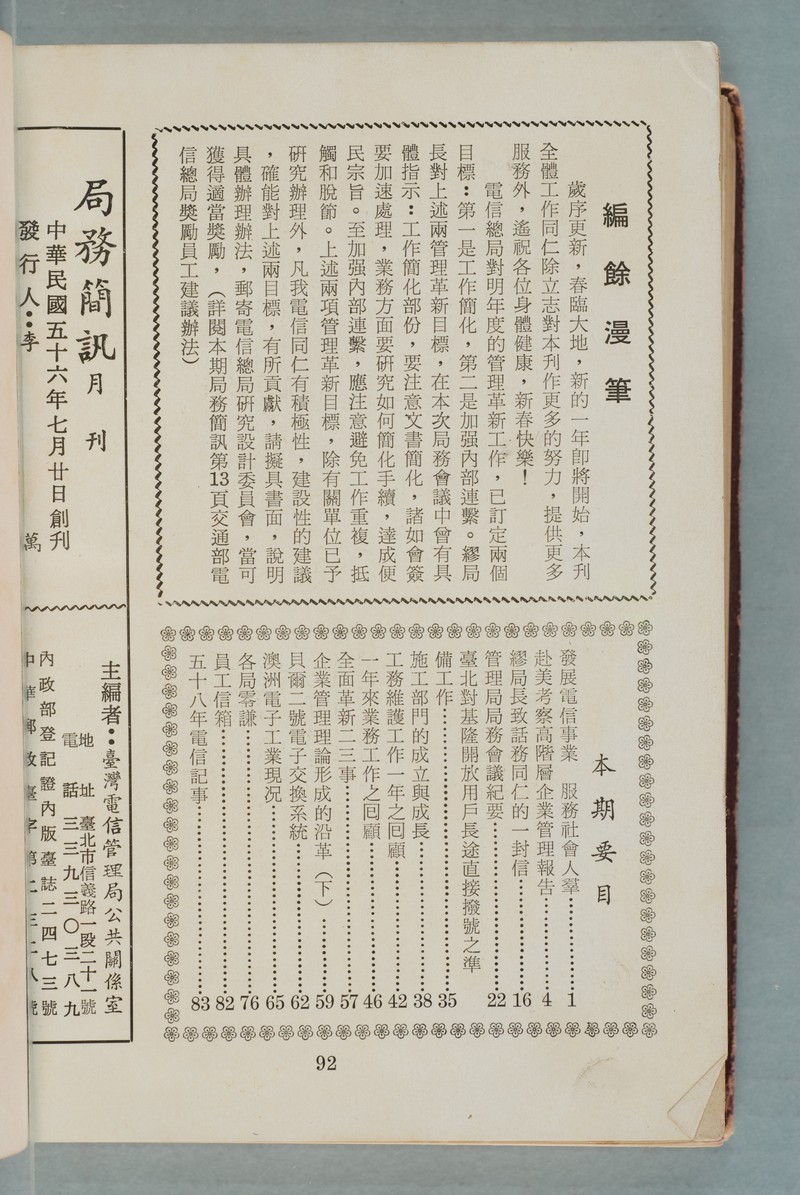 編餘漫筆
歲序更新，春臨大地，新的一年卽將開始，本刊
全體工作同仁除立志對本刊作更多的努力，提供更多
服務外，遙祝各位身體健康，新春快樂！
電信總局對明年度的管理革新工作，已訂定兩個
目標：第一是工作簡化，第二是加强內部連繫。繆局
長對上述兩管理革新目標，在本次局務會議中曾有具
體指示：工作簡化部份，要注意文書簡化，諸如會簽
要加速處理，業務方面要研究如何簡化手續，達成便
民宗旨。至加强內部連繫，應注意避免工作重複，抵
觸和脫節。上述兩項管理革新目標，除有關單位已予
研究辦理外，凡我電信同仁有積極性，建設性的建議
，確能對上述兩目標，有所貢獻，請擬具書面，說明
具體辦理辦法，郵寄電信總局研究設計委員會，當可
獲得適當獎勵，（詳閱本期局務簡訊第13頁交通部電
信總局獎勵員工建議辦法）
本期要目
發展電信事業　服務社會人羣……………1
赴美考察高階層企業管理報告……………4
繆局長致話務同仁的一封信……………16
管理局局務會議紀要……………22
臺北對基隆開放用戶長途直接撥號之準
備工作……………35
施工部門的成立與成長……………38
工務維護工作一年之回顧……………42
一年來業務工作之回顧……………46
全面革新二三事……………57
企業管理理論形成的沿革（下）……………59
貝爾二號電子交換系統……………62
澳洲電子工業現況……………65
各局零謙……………76
員工信箱……………82
五十八年電信記事……………83
局務簡訊月刊
中華民國五十六年七月廿日創刊
發行人：李　萬
主編者：臺灣電信管理局公共關係室
地址　臺北市信義路一段二十一號
電話　三三九三〇三八九
內政部登記證內版臺誌二四七三號
92